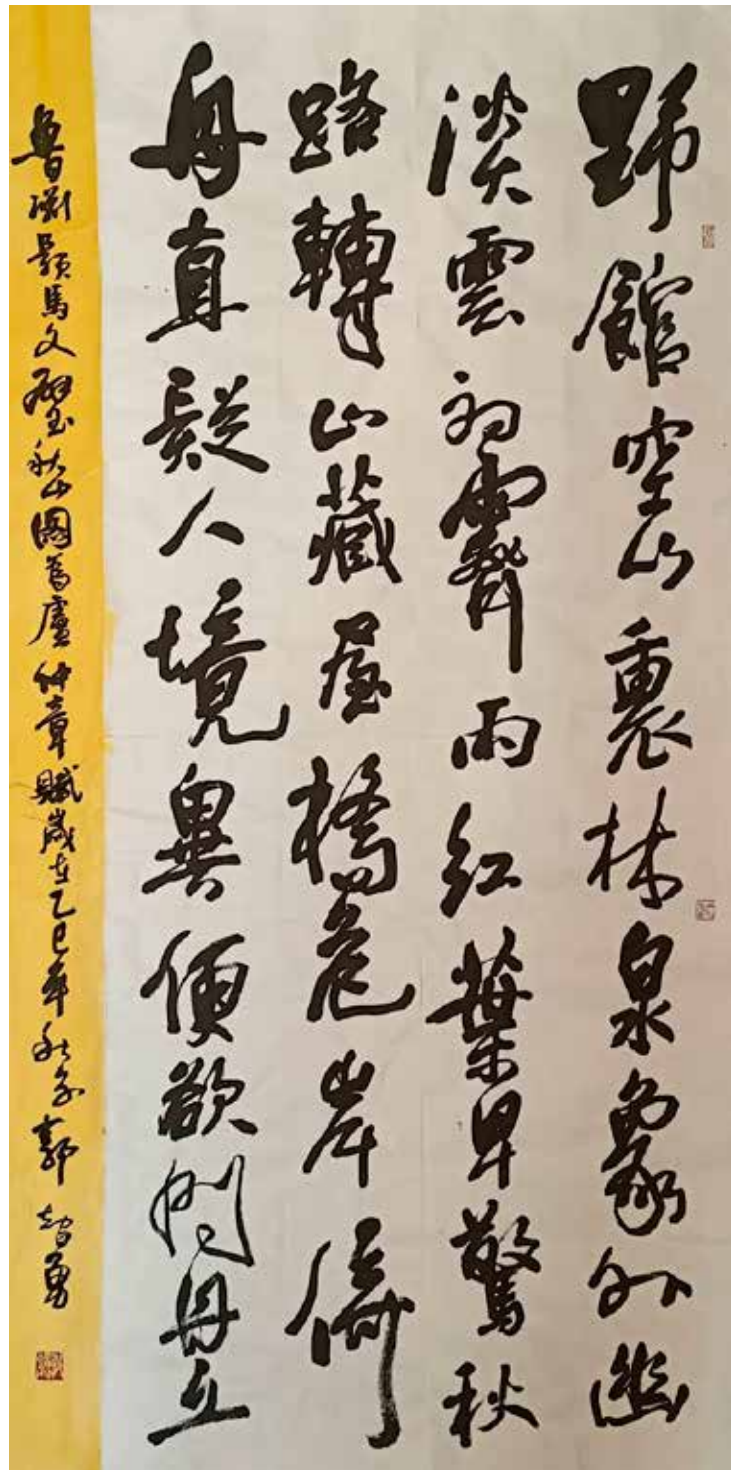 野館空山裏林泉象外幽
淡雲初霽雨紅葉早驚秋
路轉山藏屋橋危岸倚
舟直疑人境異便欲問丹丘
魯淵題馬文璧秋山圖為盧仲章賦歲在乙巳年秋 郭智勇